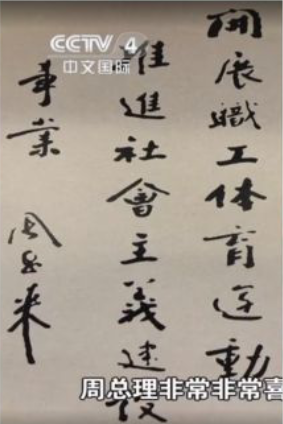 CCTV 4
中文国际
開展職工体育运動
推進社會主義建设
事業 周恩来
周总理非常非常喜